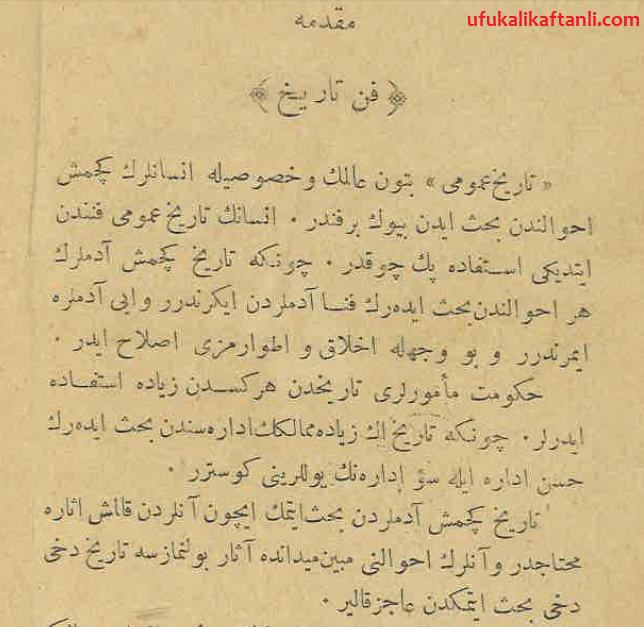 ufukalikaftanli.com
مقدمه
﴿ فن تاریخ ﴾
« تاریخ عمومی » بتون عالمك و خصوصیله انسانلرك كچمش
احوالندن بحث ایدن بیوك بر فندر . انسانك تاریخ عمومی فنندن
ایتدیكی استفاده پك چوقدر . چونكه تاریخ كچمش آدملرك
هر احوالندن بحث ایده‌رك فنا آدملردن ایكرندرر و ایی آدملره
ایمرندرر و بو وجهله اخلاق و اطوارمزی اصلاح ایدر .
حكومت مأمورلری تاریخدن هركسدن زیاده استفاده
ایدرلر . چونكه تاریخ اك زیاده ممالك اداره سندن بحث ایده‌رك
حسن اداره ایله سؤ اداره‌نك یوللرینی كوسترر .
تاریخ كچمش آدملردن بحث ایتمك ایچون آنلردن قالمش اثاره
محتاجدر و آنلرك احوالنی مبین میدانده آثار بولنمازسه تاریخ دخی
دخی بحث ایتمكدن عاجز قالیر .